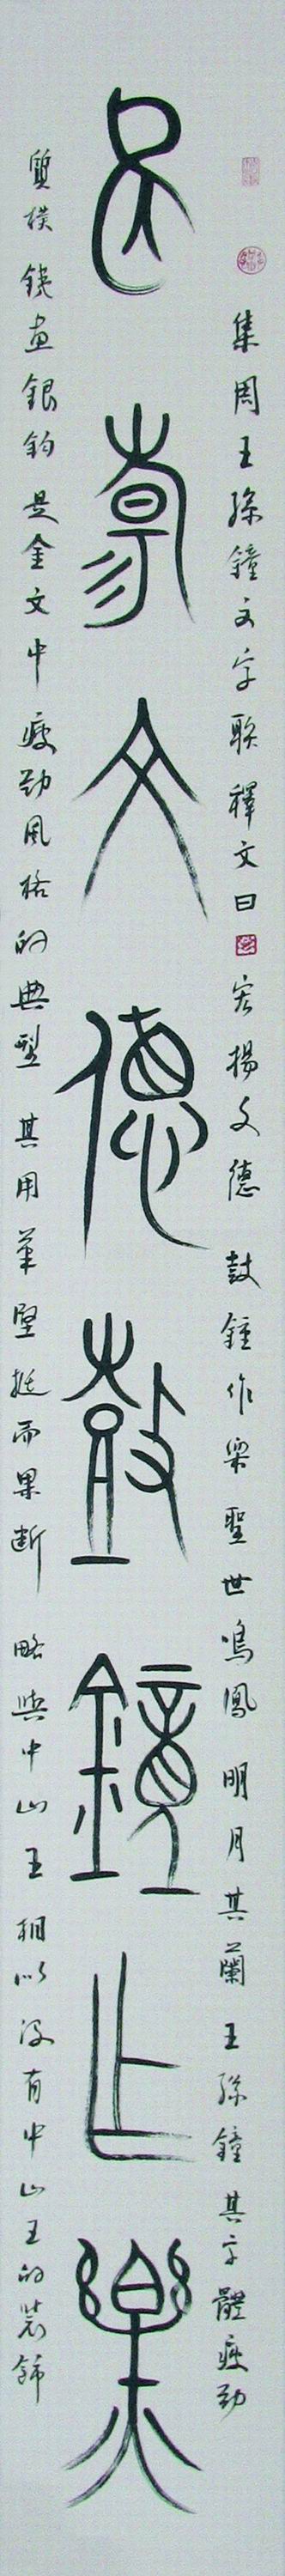 集周王孫鐘文字联釋文曰宏揚文德鼓鐘作樂聖世鳴鳳明月其蘭王孫鐘其字體瘦勁
宏揚文德鼓鐘作樂
質樸鐵畫銀鉤是金文中瘦勁風格的典型其用筆堅挺而果斷略與中山王相似没有中山王的裝飾